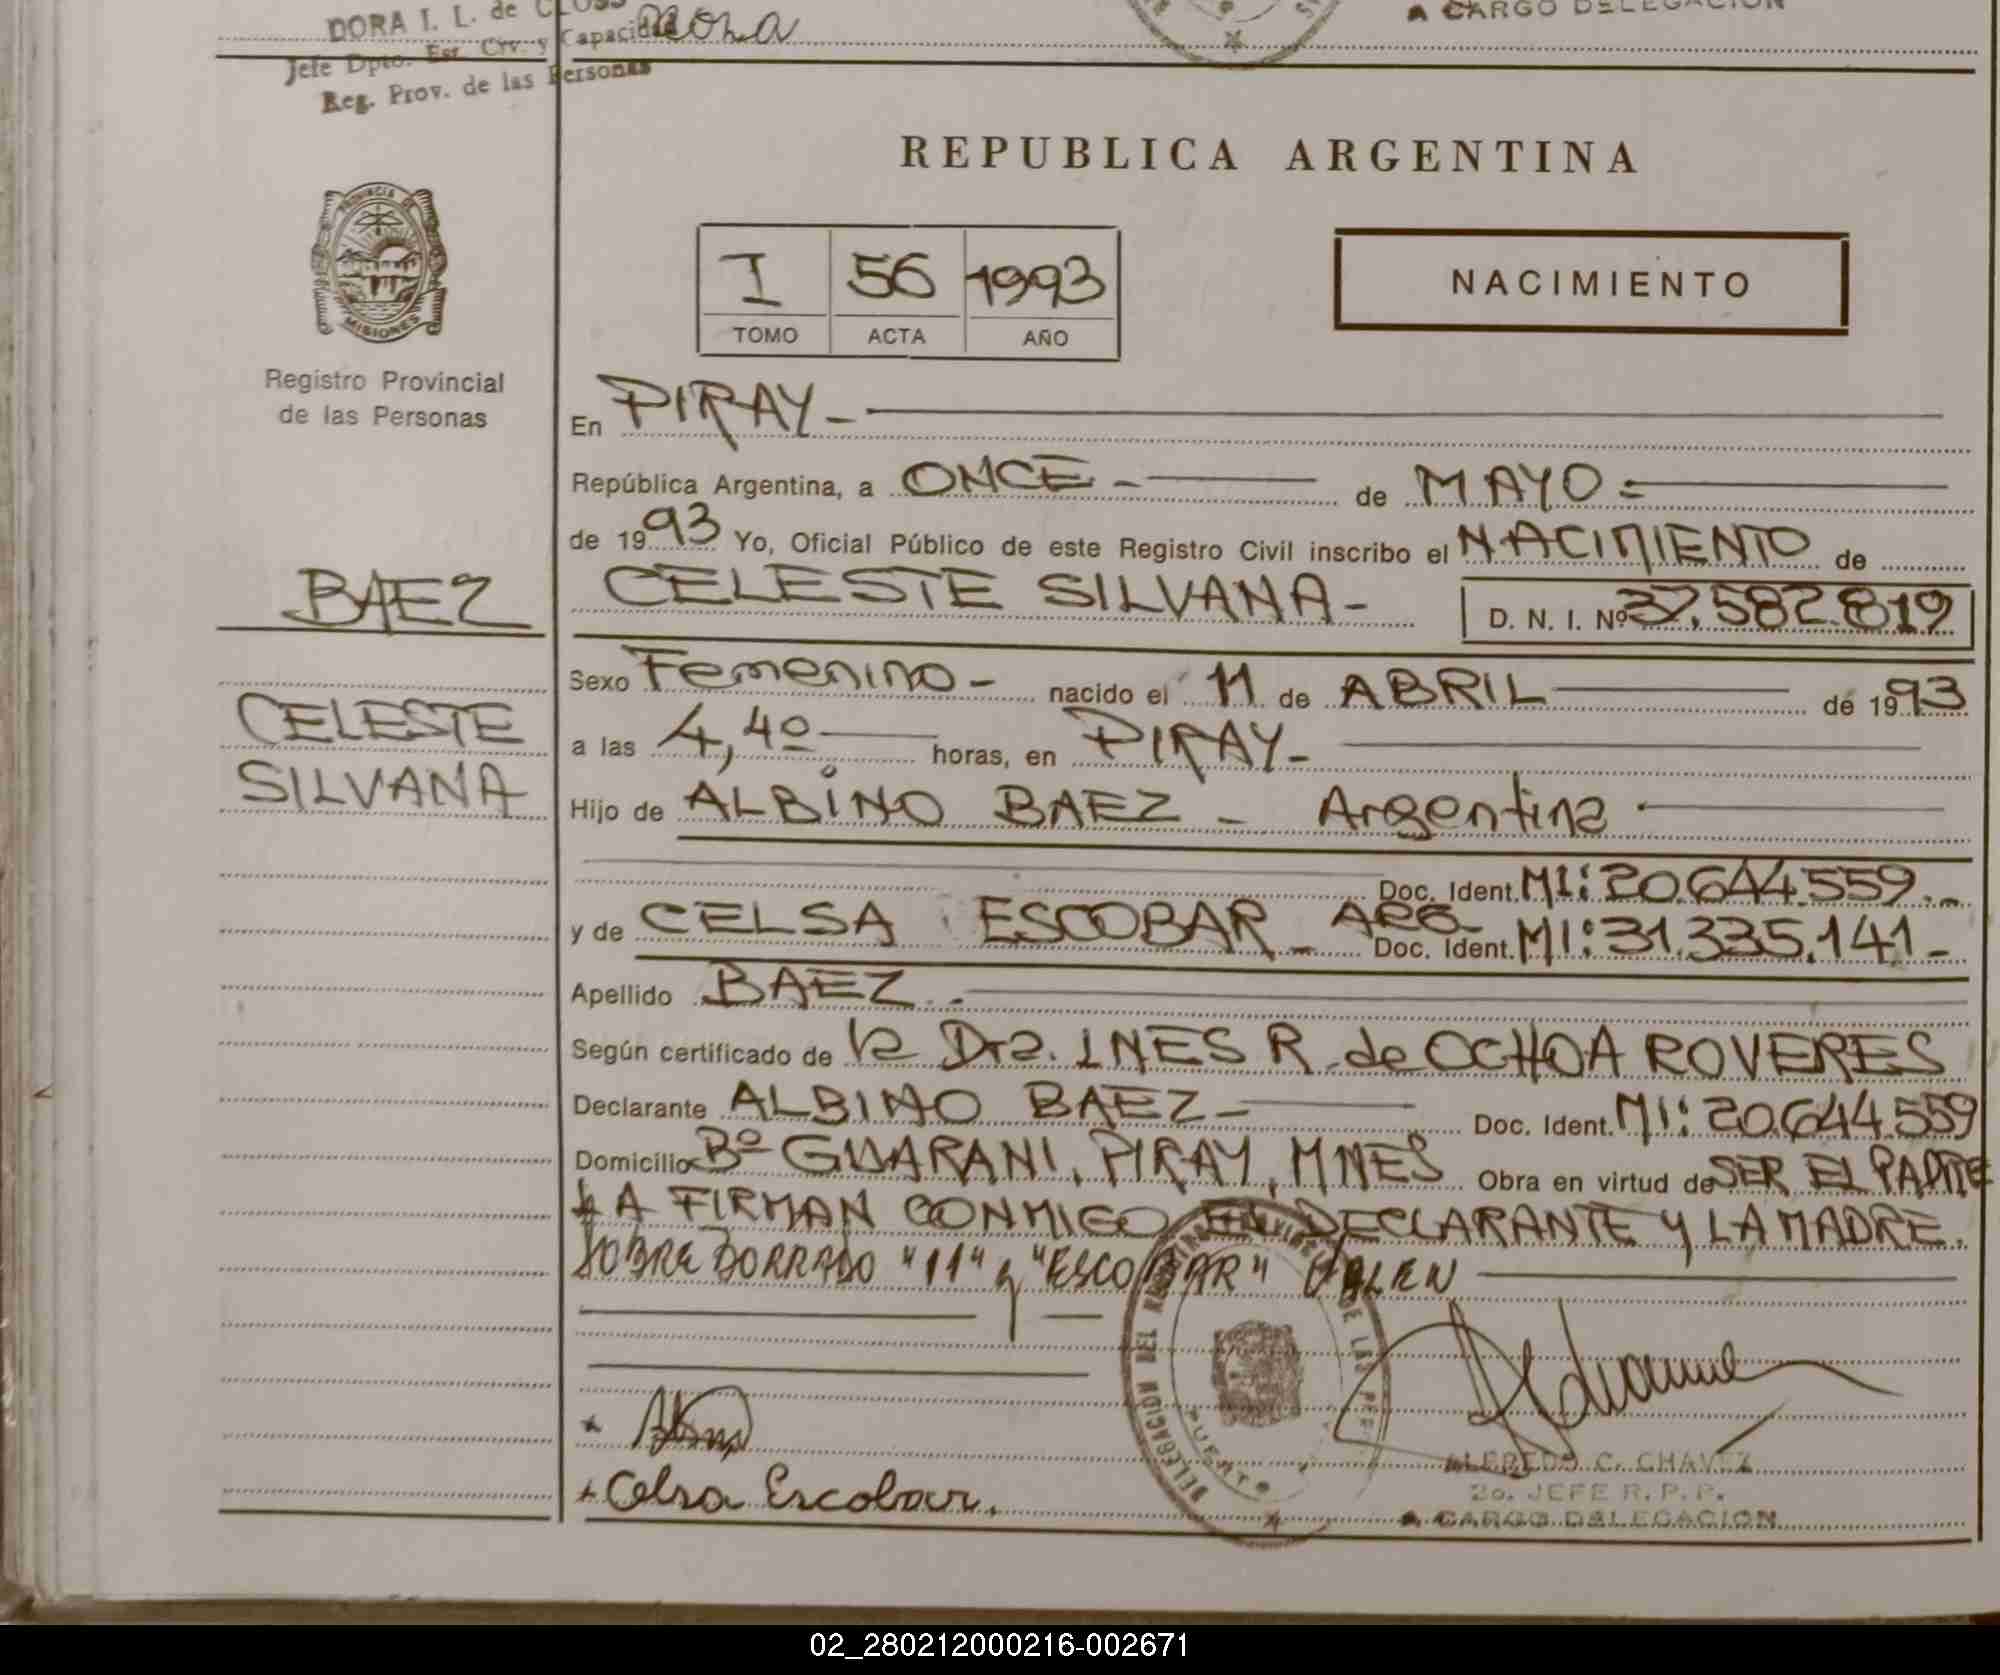 DORA I. L. de CLOSS
Jefe Dpto. Est. Civ. y Capacidad
Reg. Prov. de las Personas
A CARGO DELEGACION
REPUBLICA ARGENTINA
PROVINCIA DE
MISIONES
Registro Provincial
de las Personas
I 56 1993
TOMO ACTA AÑO
NACIMIENTO
En PIRAY-
República Argentina, a ONCE- de MAYO=
de 1993 Yo, Oficial Público de este Registro Civil inscribo el NACIMIENTO de
BAEZ
CELESTE SILVANA- D. N. I. Nº 37.582.819
Sexo Femenino- nacido el 11 de ABRIL de 1993
CELESTE
SILVANA
a las 4,40 horas, en PIRAY-
Hijo de ALBINO BAEZ - Argentina
Doc. Ident. MI: 20.644.559.-
y de CELSA ESCOBAR - ARG Doc. Ident. MI: 31.335.141-
Apellido BAEZ.-
Según certificado de la Dra. INES R. de OCHOA ROVERES
Declarante ALBINO BAEZ- Doc. Ident. MI: 20.644.559
Domicilio Bº GUARANI, PIRAY, MNES Obra en virtud de SER EL PADRE
LA FIRMAN CONMIGO EL DECLARANTE Y LA MADRE.
SOBRE BORRADO "11" y "ESCOBAR" VALEN
DELEGACION DEL REGISTRO PROVINCIAL DE LAS PERS
PUERTO
+ Celsa Escobar.
ALFREDO C. CHAVEZ
2o. JEFE R. P. P.
A CARGO DELEGACION
02_280212000216-002671